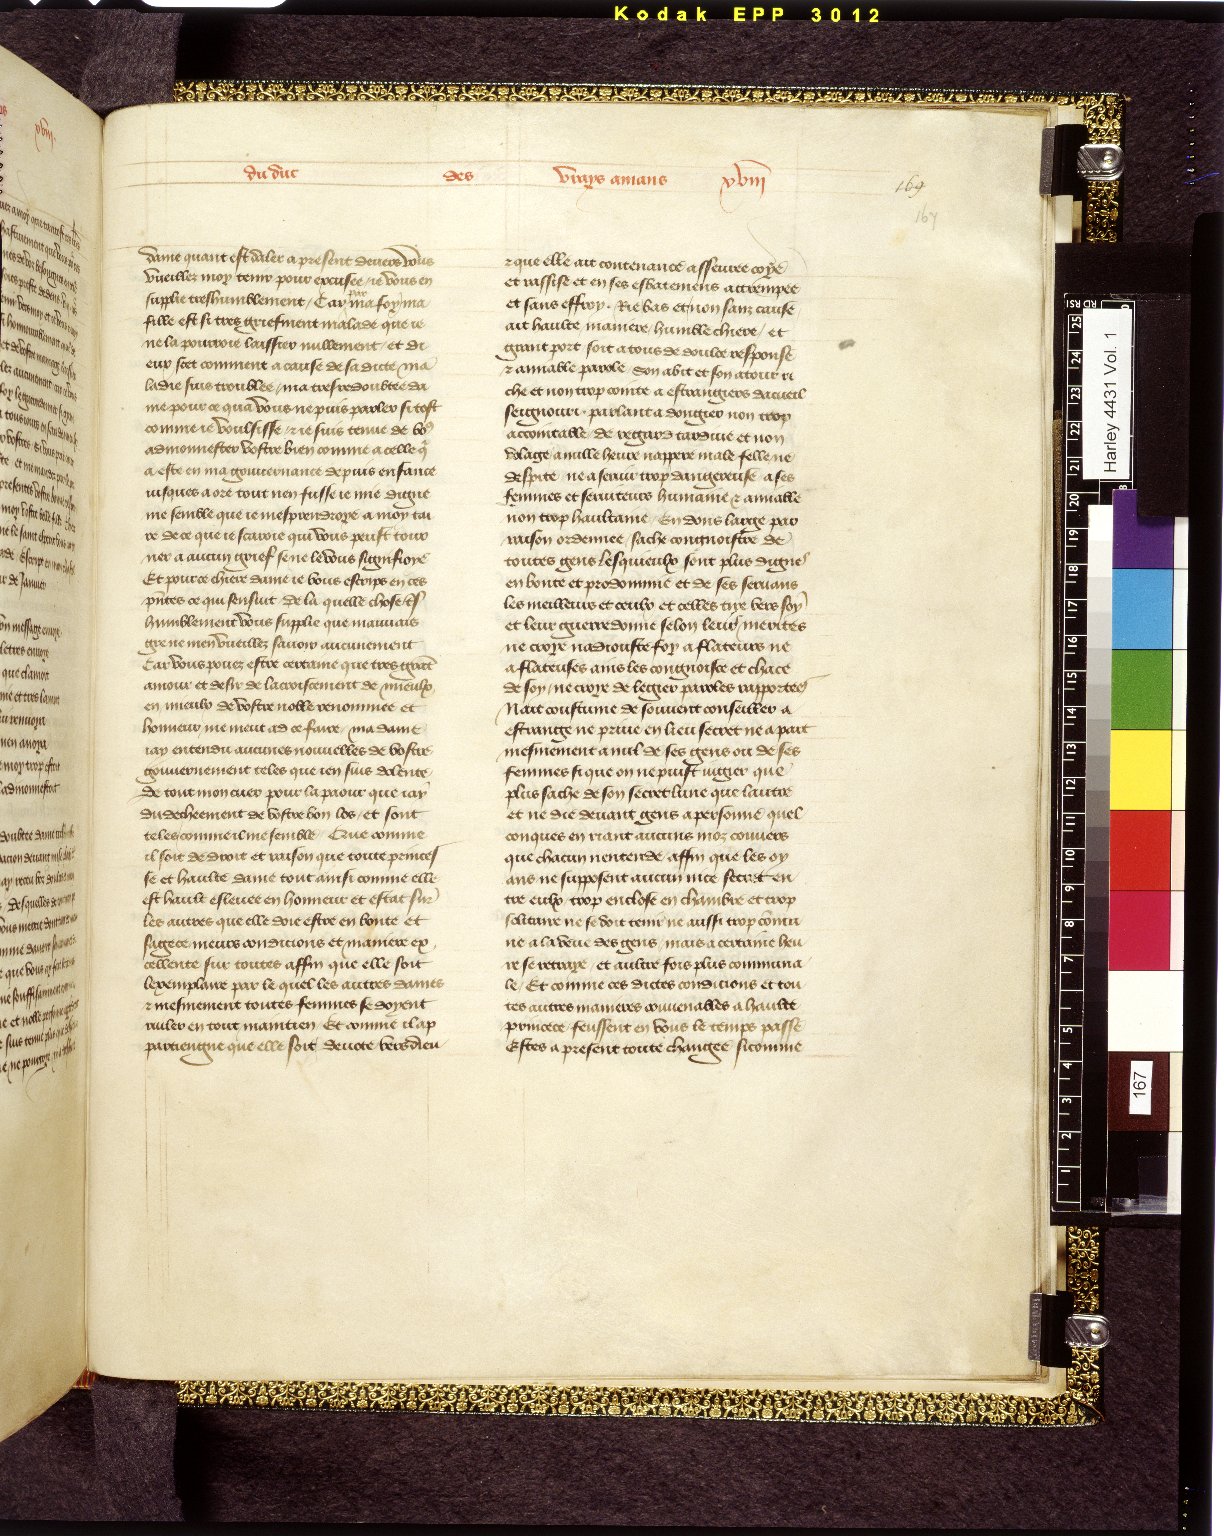 Kodak EPP 3012
du duc des vrays amans xviii
169
167
dame quant est daler a present devers vous
vueillez moy tenir pour excusee / ie vous en
supplie treshumblement / Car par ma foy ma
fille est si tres griefment malade que ie
ne la pourroie laissier nullement / et di
eux scet comment a cause de sa dicte ma
ladie suis troublee / ma tresredoubtee da
me pour ce qua vous ne puis parler si tost
comme ie voulsisse / et ie suis tenue de vo9
admonnester vostre bien comme a celle q̃
a este en ma gouvernance depuis enfance
iusques a ore tout nen fusse ie mie digne
me semble que ie mesprendroye a moy tai
re de ce que ie scavroie qui vous peust tour
ner a aucun grief se ne le vous signifioye
Et pource chiere dame ie vous escrips en ces
pñtes ce qui sensuit de la quelle chose tr̃s
humblement vous supplie que mauvais
gre ne men vueillez savoir aucunement
Car vous pouez estre certaine que tres grant
amour et desir de lacroiscement de mieulx
en mieulx de vostre noble renommee et
honneur me meut ad ce faire / ma dame
iay entendu aucunes nouvelles de vostre
gouvernement teles que ien suis dolente
de tout mon cuer pour la paour que iay
du decheement de vostre bon los / et sont
teles comme il me semble / Que comme
il soit de droit et raison que toute princes
se et haulte dame tout ainsi comme elle
est hault eslevee en honneur et estat sur
les autres que elle doie estre en bonte et
sagece meurs condicions et maniere ex
cellente sur toutes affin que elle soit
lexemplaire par le quel les autres dames
et mesmement toutes femmes se doyent
riuler en tout maintien Et comme il ap
partiengne que elle soit devote vers dieu
et que elle ait contenance asseuree coye
et rassise et en ses esbatemens attrempee
et sans effroy . Rie bas et non sanz cause
ait haulte maniere / humble chiere / et
grant port soit a tous de doulce response
et amiable parole son abit et son atour ri
che et non trop cointe a estrangiers dacueil
seignouri . parlant a dongier non trop
accointable / de regard tardive et non
volage a nulle heure nappere male felle ne
despite . ne a servir trop dangereuse a ses
femmes et serviteurs humaine et amiable
non trop haultaine / En dons large par
raison ordennee / sache congnoistre de
toutes gens lesquieulx sont plus dignes
en bonte et prodommie et de ses servans
les meilleurs et ceulx et celles tire vers soy
et leur guerredonne selon leur merites
ne croye nadiouste foy a flateurs ne
a flateuses ains les congnoisce et chace
de soy / ne croye de legier paroles rapportees
Nait coustume de souvent conseillier a
estrange ne prive en lieu secret ne a part
mesmement a nul de ses gens ou de ses
femmes si que on ne puist iugier que
plus sache de son secret lune que lautre
et ne die devant gens a personne quel
conques en riant aucuns moz couvers
que chacun nentende affin que les oy
ans ne supposent aucun nice secret en
tre eulx trop enclose en chambre et trop
solitaire ne se doit tenir ne aussi trop cõmu
ne a la veue des gens / mais a certaine heu
re se retraye / et aultre fois plus communa
le / Et comme ces dictes condicions et tou
tes autres manieres couvenables a haulte
princece / feussent en vous le temps passe
Estes a present toute changee sicomme
Harley 4431 Vol. 1
167